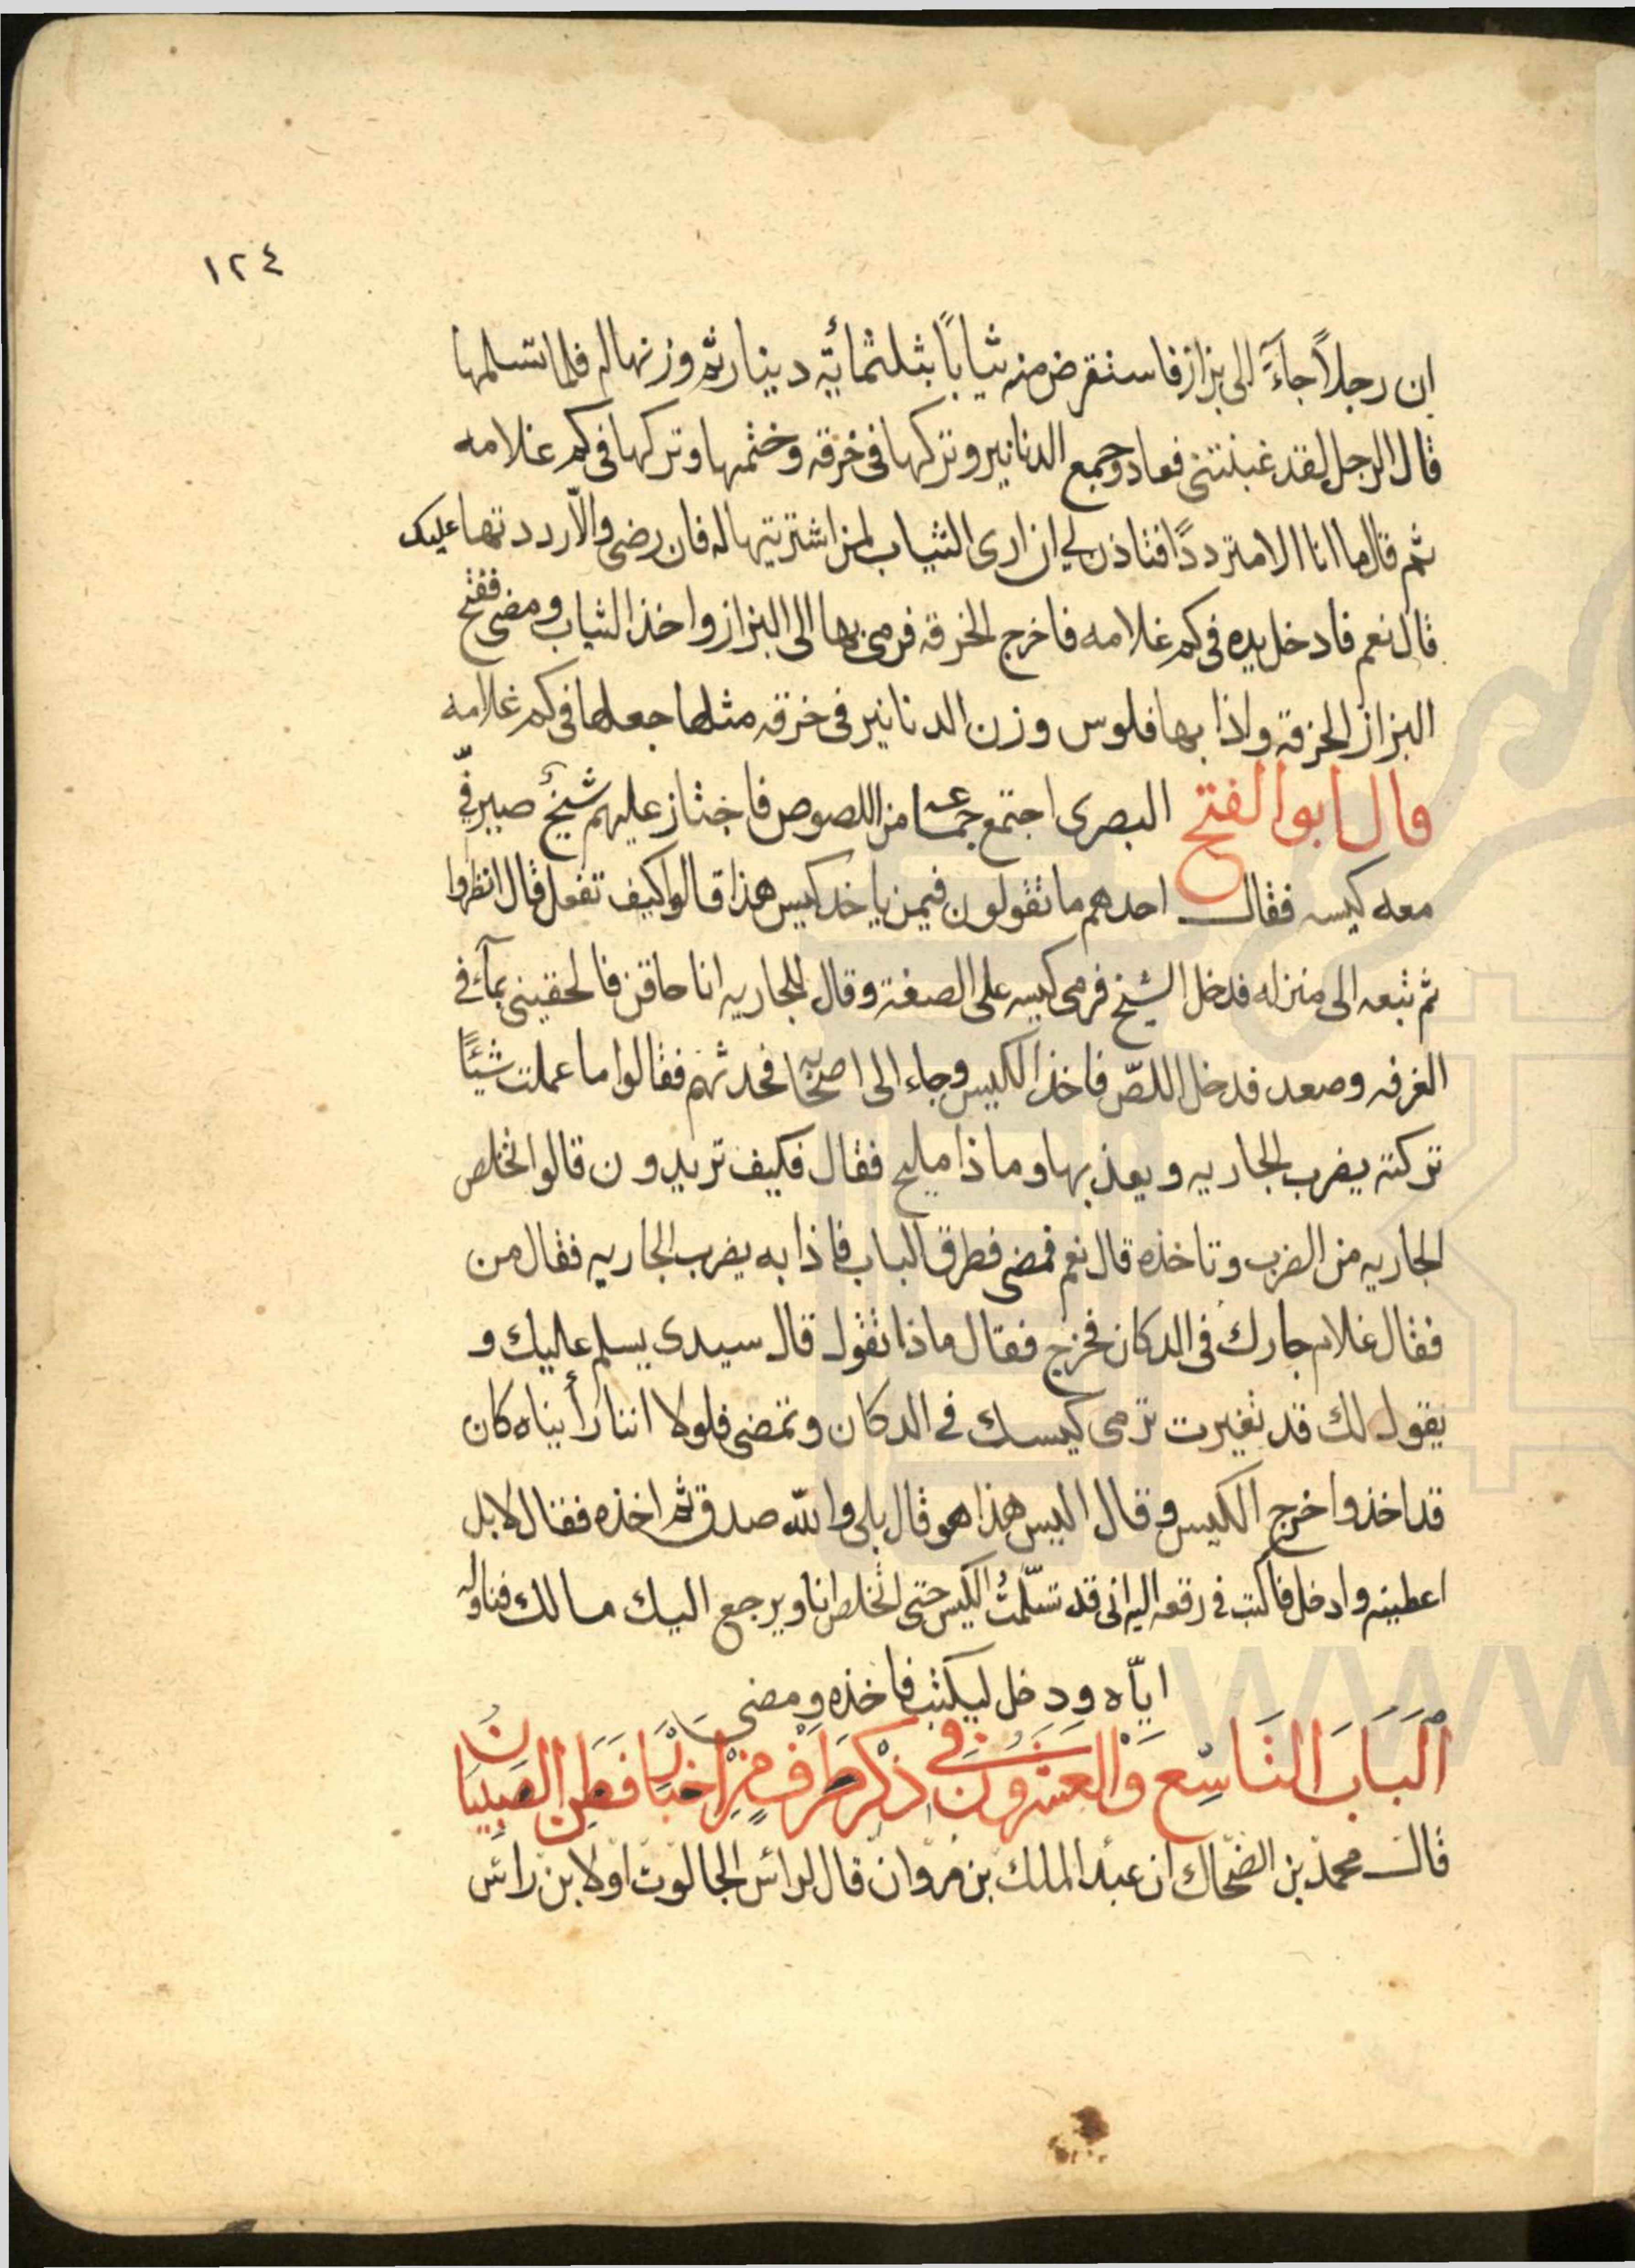 ١٢٤
ان رجلاً جاءَ الى بزاز فاستقرض منه ثياباً بثلثمائة دينار ثم وزنها له فلما تسلمها
قال الرجل لقد غبنتنى فعاد وجمع الدنانير وتركها فى خرقه وختمها وتركها فى كم غلامه
ثم قال ما انا الا مترددًا فتاذن لى ان ارى الثياب لمن اشتريتها له فان رضى والّا رددتها عليك
قال نعم فادخل يده فى كم غلامه فاخرج الخرقه فرمى بها الى البزاز واخذ الثياب ومضى ففتح
البزاز الخرقه واذا بها فلوس وزن الدنانير فى خرقه مثلها جعلها فى كم غلامه
قال ابو الفتح البصرى اجتمع جماعه من اللصوص فاجتاز عليهم شيخ صيرفىّ
معه كيسه فقال احدهم ما تقولون فيمن ياخذ كيس هذا قالوا كيف تفعل قال انظروا
ثم تبعه الى منزله فدخل الشيخ فرمى كيسه على الصفة وقال للجاريه انا حاقن فالحقينى بمآء فى
الغرفه وصعد فدخل اللصّ فاخذ الكيس وجاء الى اصحابه فحدثهم فقالوا ما عملت شيئًا
تركته يضرب الجاريه ويعذبها وما ذا مليح فقال فكيف تريدون قالوا تخلص
الجاريه من الضرب وتاخذه قال نعم فمضى فطرق الباب فاذا به يضرب الجاريه فقال من
فقال غلام جارك فى الدكان فخرج فقال ماذا تقول قال سيدى يسلم عليك و
يقول لك قد تغيرت ترمى كيسك فى الدكان وتمضى فلولا اننا رأيناه كان
قد اخذ واخرج الكيس وقال اليس هذا هو قال بلى والله صدق ثم اخذه فقال لا بل
اعطينه وادخل فاكتب فى رقعه اليه انى قد تسلّمتُ الكيس حتى اتخلص انا ويرجع اليك مالك فناوله
ايّاه ودخل ليكتب فاخذه ومضى
اَلبَابَ التَاسِع وَالعشرُونَ فى ذكر طَرف مِن اَخبَار فطَن الصِبيَانُ
قال محمد بن الضحاك ان عبد الملك بن مروان قال لراس الجالوت او لابن راس